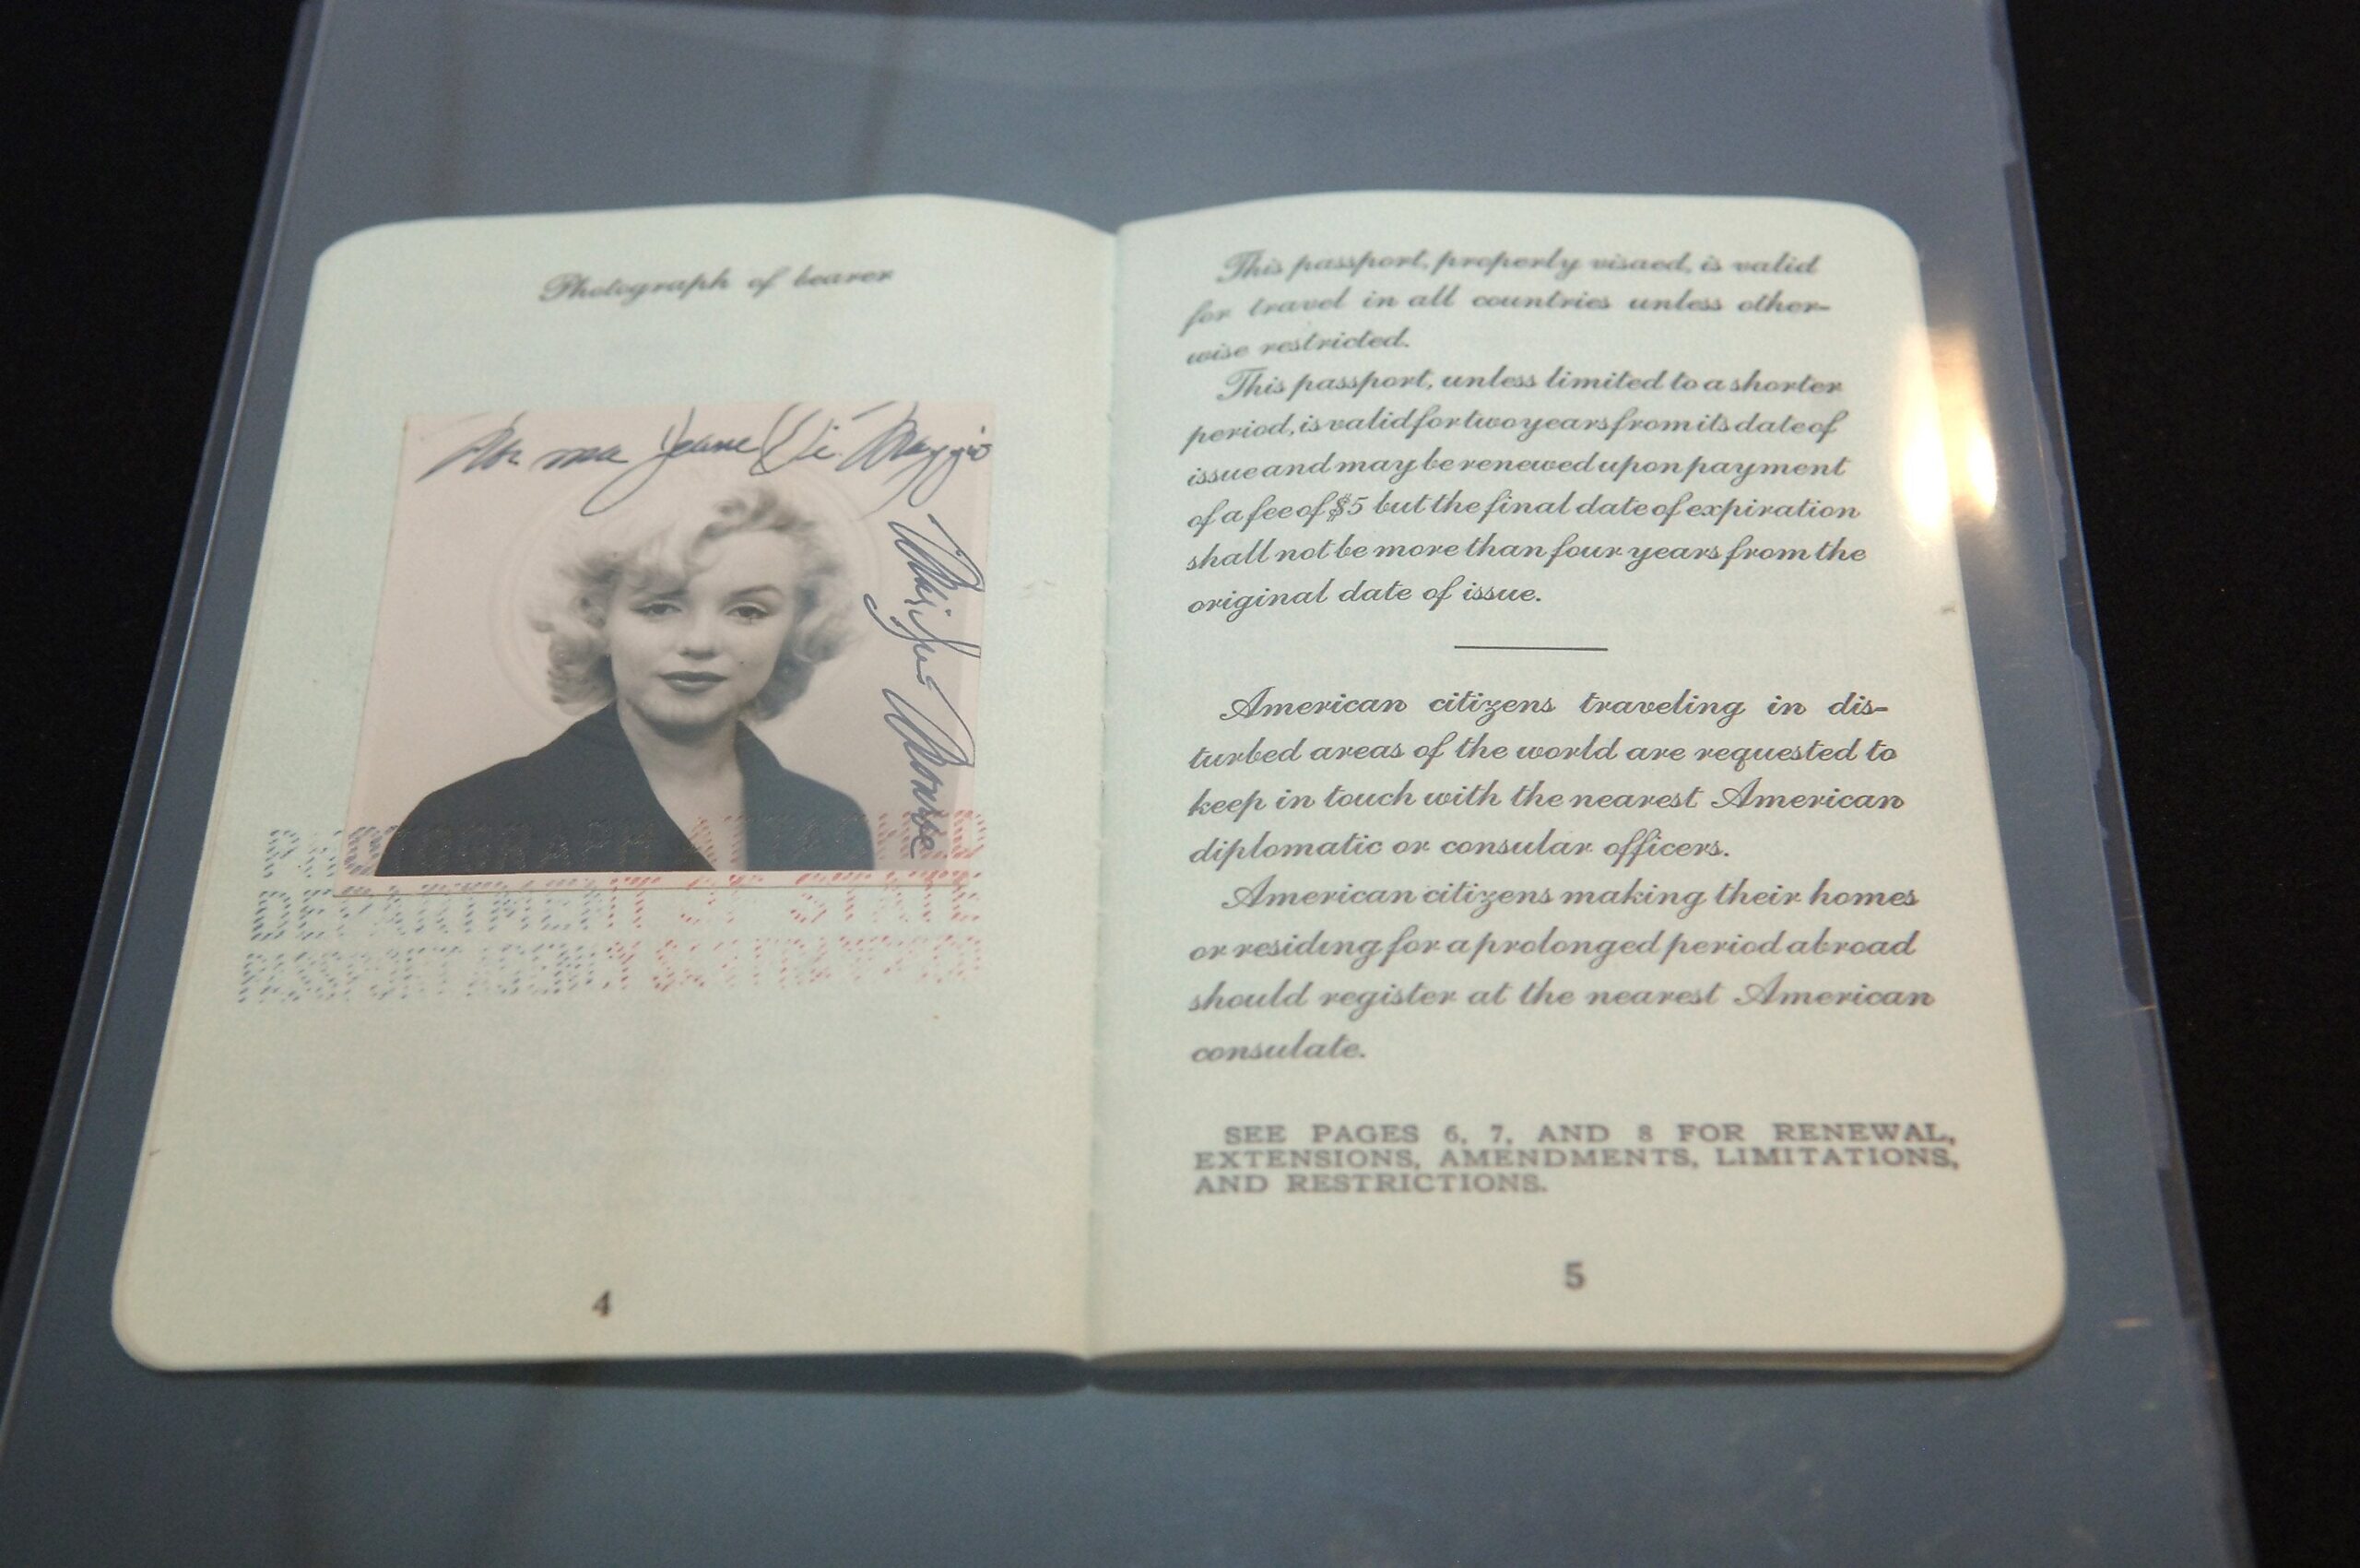 Photograph of bearer
Norma Jeane Di Maggio
Marilyn Monroe
PHOTOGRAPH ATTACHED
DEPARTMENT OF STATE
PASSPORT AGENCY
4
This passport, properly visaed, is valid
for travel in all countries unless other-
wise restricted.
This passport, unless limited to a shorter
period, is valid for two years from its date of
issue and may be renewed upon payment
of a fee of $5 but the final date of expiration
shall not be more than four years from the
original date of issue.
American citizens traveling in dis-
turbed areas of the world are requested to
keep in touch with the nearest American
diplomatic or consular officers.
American citizens making their homes
or residing for a prolonged period abroad
should register at the nearest American
consulate.
SEE PAGES 6, 7, AND 8 FOR RENEWAL,
EXTENSIONS, AMENDMENTS, LIMITATIONS,
AND RESTRICTIONS.
5